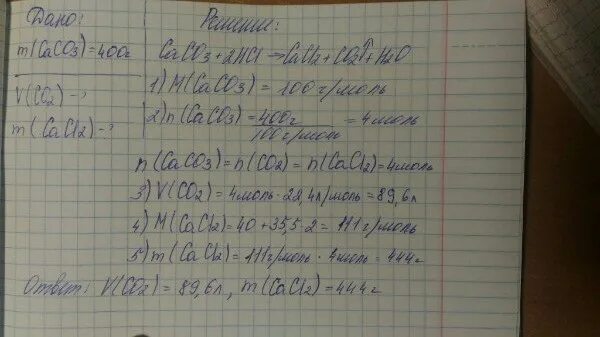 Дано:
m(CaCO3)=400г
V(CO2)-?
m(CaCl2)-?
Решение:
CaCO3+2HCl→CaCl2+CO2↑+H2O
1) M(CaCO3)=100г/моль
2) n(CaCO3)=400г/100г/моль=4моль
n(CaCO3)=n(CO2)=n(CaCl2)=4моль
3) V(CO2)=4моль·22,4л/моль=89,6л
4) M(CaCl2)=40+35,5·2=111г/моль
5) m(CaCl2)=111г/моль·4моль=444г
Ответ: V(CO2)=89,6л, m(CaCl2)=444г